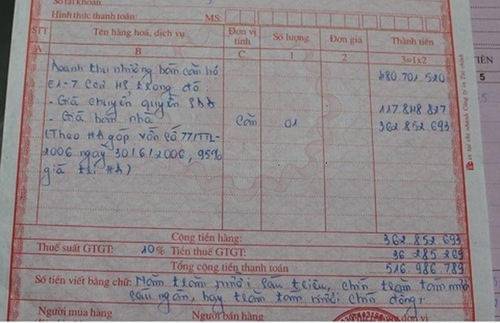 Số tài khoản
Hình thức thanh toán: MS:
STT Tên hàng hoá, dịch vụ Đơn vị tính Số lượng Đơn giá Thành tiền
A B C 1 2 3=1x2
Doanh thu nhượng bán căn hộ 480 701 520
E1-7 trong đó
- Giá chuyển quyền SDĐ 117 848 827
- Giá bán nhà Căn 01 362 852 693
(Theo HĐ góp vốn số 77/TTL-
2006 ngày 30/6/2006, 95%
giá trị HĐ)
Cộng tiền hàng: 362 852 693
Thuế suất GTGT: 10% Tiền thuế GTGT: 36 285 269
Tổng cộng tiền thanh toán 516 986 789
Số tiền viết bằng chữ: Năm trăm mười sáu triệu, chín trăm tám mươi
sáu ngàn, bảy trăm tám mươi chín đồng
Người mua hàng Người bán hàng đơn vị
TIỀN
5